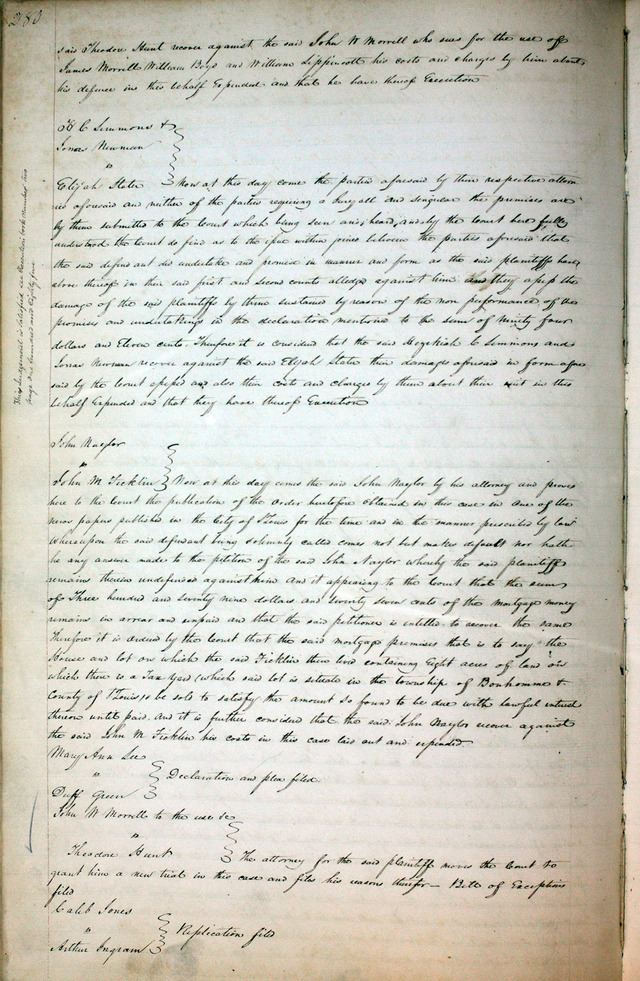 283
said Theodore Hunt recover against the said John W Morrell who sues for the use of
James Morrell William Boyd and William Lippincott his costs and charges by him about
his defence in this behalf Expended and that he have thereof Execution
H C Simmons &
Jonas Newman
vs
Elijah Slater Now at this day come the parties aforesaid by their respective attor
nies aforesaid and neither of the parties requiring a jury all and singular the premises are
by them submitted to the Court which being seen and heard, and by the Court here fully
understood the Court do find as to the issue within joined between the parties aforesaid that
the said defendant did undertake and promise in manner and form as the said plaintiffs have
above thereof in their said first and second counts alledged against him And they assess the
damage of the said plaintiffs by them sustained by reason of the non performance of the
promises and undertakings in the declaration mentioned to the sum of ninety four
dollars and Eleven cents. Therefore it is considered that the said Hezekiah C Simmons and
Jonas Newman recover against the said Elijah Slater their damages aforesaid in form afore
said by the Court assessed and also their costs and charges by them about their suit in this
behalf Expended and that they have thereof Execution
This Judgement is satisfied see Execution book number two
page one hundred and Eighty five
John Naylor
vs
John M. Ficklin Now at this day comes the said John Naylor by his attorney and proves
here to the Court the publication of the order heretofore obtained in this case in one of the
news papers published in the City of St Louis for the time and in the manner prescribed by law
Whereupon the said defendant being solemnly called comes not but makes default nor hath
he any answer made to the petition of the said John Naylor whereby the said plaintiff
remains therein undefended against him And it appearing to the Court that the sum
of Three hundred and seventy nine dollars and seventy seven cents of the mortgage money
remains in arrear and unpaid and that the said petitioner is intitled to recover the same
Therefore it is ordered by the Court that the said mortgage premises that is to say "the
House and lot on which the said Ficklin then lived containing Eight acres of land on
which there is a Tan Yard (which said lot is situate in the township of Bonhomme &
County of St Louis) be sold to satisfy the amount so found to be due with lawful interest
thereon until paid. and it is further considered that the said John Naylor recover against
the said John M. Ficklin his costs in this case laid out and expended.
Mary Ann Lee
vs
Duff Green Declaration and plea filed.
John W Morrell to the use &c
vs
Theodore Hunt The attorney for the said plaintiff moves the Court to
grant him a new trial in this case and files his reasons therefor — Bill of Exceptions
filed
Caleb Jones
vs
Arthur Ingram Replication filed